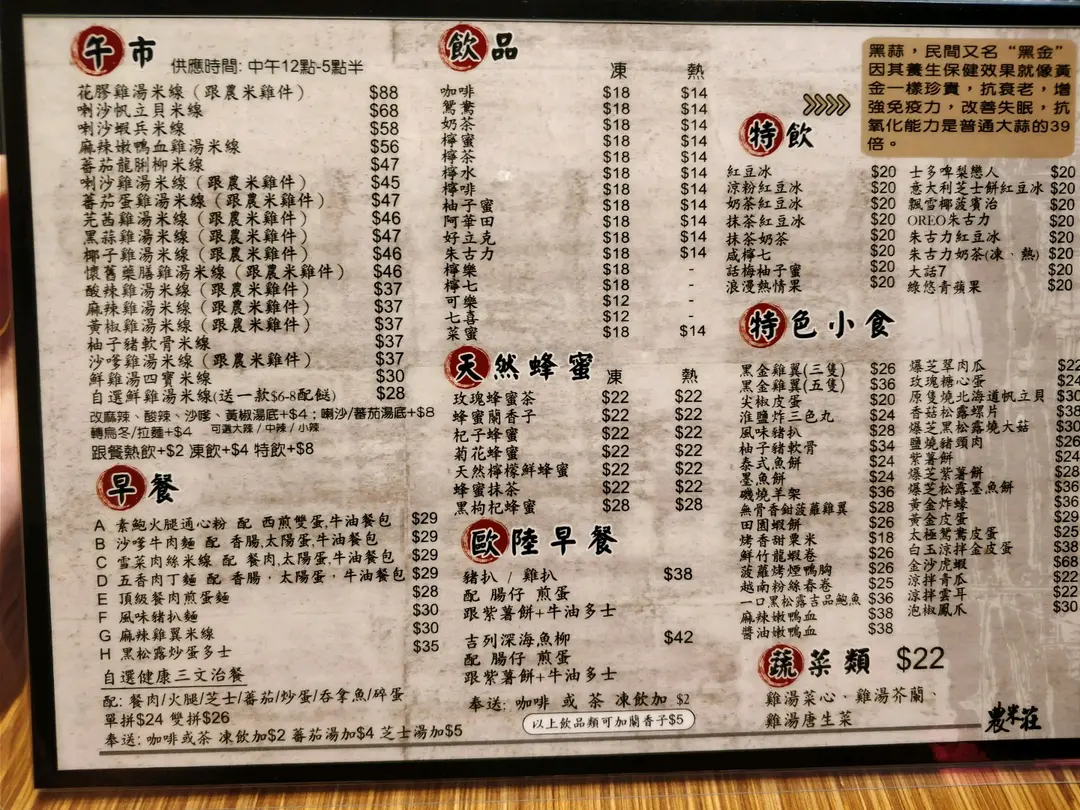 午市 供應時間: 中午12點-5點半
花膠雞湯米線（跟農米雞件） $88
喇沙帆立貝米線 $68
喇沙蝦兵米線 $58
麻辣嫩鴨血雞湯米線 $56
蕃茄龍脷柳米線 $47
喇沙雞湯米線（跟農米雞件） $45
蕃茄蛋雞湯米線（跟農米雞件） $47
芫茜雞湯米線（跟農米雞件） $46
黑蒜雞湯米線（跟農米雞件） $47
椰子雞湯米線（跟農米雞件） $46
懷舊藥膳雞湯米線（跟農米雞件） $46
酸辣雞湯米線（跟農米雞件） $37
麻辣雞湯米線（跟農米雞件） $37
黃椒雞湯米線（跟農米雞件） $37
柚子豬軟骨米線 $37
沙嗲雞湯米線（跟農米雞件） $37
鮮雞湯四寶米線 $30
自選鮮雞湯米線(送一款$6-8配餸) $28
改麻辣、酸辣、沙嗲、黃椒湯底+$4；喇沙/蕃茄湯底+$8
轉烏冬/拉麵+$4 可選大辣 / 中辣 / 小辣
跟餐熱飲+$2 凍飲+$4 特飲+$8
早餐
A 素鮑火腿通心粉 配 西煎雙蛋,牛油餐包 $29
B 沙嗲牛肉麵 配 香腸,太陽蛋,牛油餐包 $29
C 雪菜肉絲米線 配 餐肉,太陽蛋,牛油餐包 $29
D 五香肉丁麵 配 香腸，太陽蛋，牛油餐包 $29
E 頂級餐肉煎蛋麵 $28
F 風味豬扒麵 $30
G 麻辣雞翼米線 $30
H 黑松露炒蛋多士 $35
自選健康三文治餐
配: 餐肉/火腿/芝士/蕃茄/炒蛋/吞拿魚/碎蛋
單拼$24 雙拼$26
奉送: 咖啡或茶 凍飲加$2 蕃茄湯加$4 芝士湯加$5
飲品
凍 熱
咖啡 $18 $14
鴛鴦 $18 $14
奶茶 $18 $14
檸蜜 $18 $14
檸茶 $18 $14
檸水 $18 $14
檸啡 $18 $14
柚子蜜 $18 $14
阿華田 $18 $14
好立克 $18 $14
朱古力 $18 $14
檸樂 $18 -
檸七 $18 -
可樂 $12 -
七喜 $12 -
菜蜜 $18 $14
天然蜂蜜 凍 熱
玫瑰蜂蜜茶 $22 $22
蜂蜜蘭香子 $22 $22
杞子蜂蜜 $22 $22
菊花蜂蜜 $22 $22
天然檸檬鮮蜂蜜 $22 $22
蜂蜜抹茶 $22 $22
黑枸杞蜂蜜 $28 $28
歐陸早餐
豬扒 / 雞扒 $38
配 腸仔 煎蛋
跟紫薯餅+牛油多士
吉列深海魚柳 $42
配 腸仔 煎蛋
跟紫薯餅+牛油多士
奉送: 咖啡 或 茶 凍飲加 $2
以上飲品類可加蘭香子$5
黑蒜，民間又名“黑金”
因其養生保健效果就像黃
金一樣珍貴，抗衰老，增
強免疫力，改善失眠，抗
氧化能力是普通大蒜的39
倍。
特飲
紅豆冰 $20
涼粉紅豆冰 $20
奶茶紅豆冰 $20
抹茶紅豆冰 $20
抹茶奶茶 $20
咸檸七 $20
話梅柚子蜜 $20
浪漫熱情果 $20
士多啤梨戀人 $20
意大利芝士餅紅豆冰 $20
飄雪椰菠賓治 $20
OREO朱古力 $20
朱古力紅豆冰 $20
朱古力奶茶(凍、熱) $20
大話7 $20
綠悠青蘋果 $20
特色小食
黑金雞翼(三隻) $26
黑金雞翼(五隻) $36
尖椒皮蛋 $20
淮鹽炸三色丸 $24
風味豬扒 $28
柚子豬軟骨 $34
泰式魚餅 $24
墨魚餅 $24
磯燒羊架 $36
無骨香鉗菠蘿雞翼 $28
田園蝦餅 $26
烤香甜粟米 $18
鮮竹龍蝦卷 $26
菠蘿烤煙鴨胸 $26
越南粉絲春卷 $25
一口黑松露吉品鮑魚 $36
麻辣嫩鴨血 $38
醬油嫩鴨血 $38
爆芝翠肉瓜 $22
玫瑰糖心蛋 $24
原隻燒北海道帆立貝 $30
香菇松露螺片 $38
爆芝黑松露燒大菇 $30
鹽燒豬頸肉 $26
紫薯餅 $24
爆芝紫薯餅 $28
爆芝松露墨魚餅 $36
黃金炸蠔 $36
黃金皮蛋 $29
太極鴛鴦皮蛋 $25
白玉涼拌金皮蛋 $38
金沙虎蝦 $68
涼拌青瓜 $22
涼拌雲耳 $22
泡椒鳳爪 $30
蔬菜類 $22
雞湯菜心、雞湯芥蘭、
雞湯唐生菜
農米莊